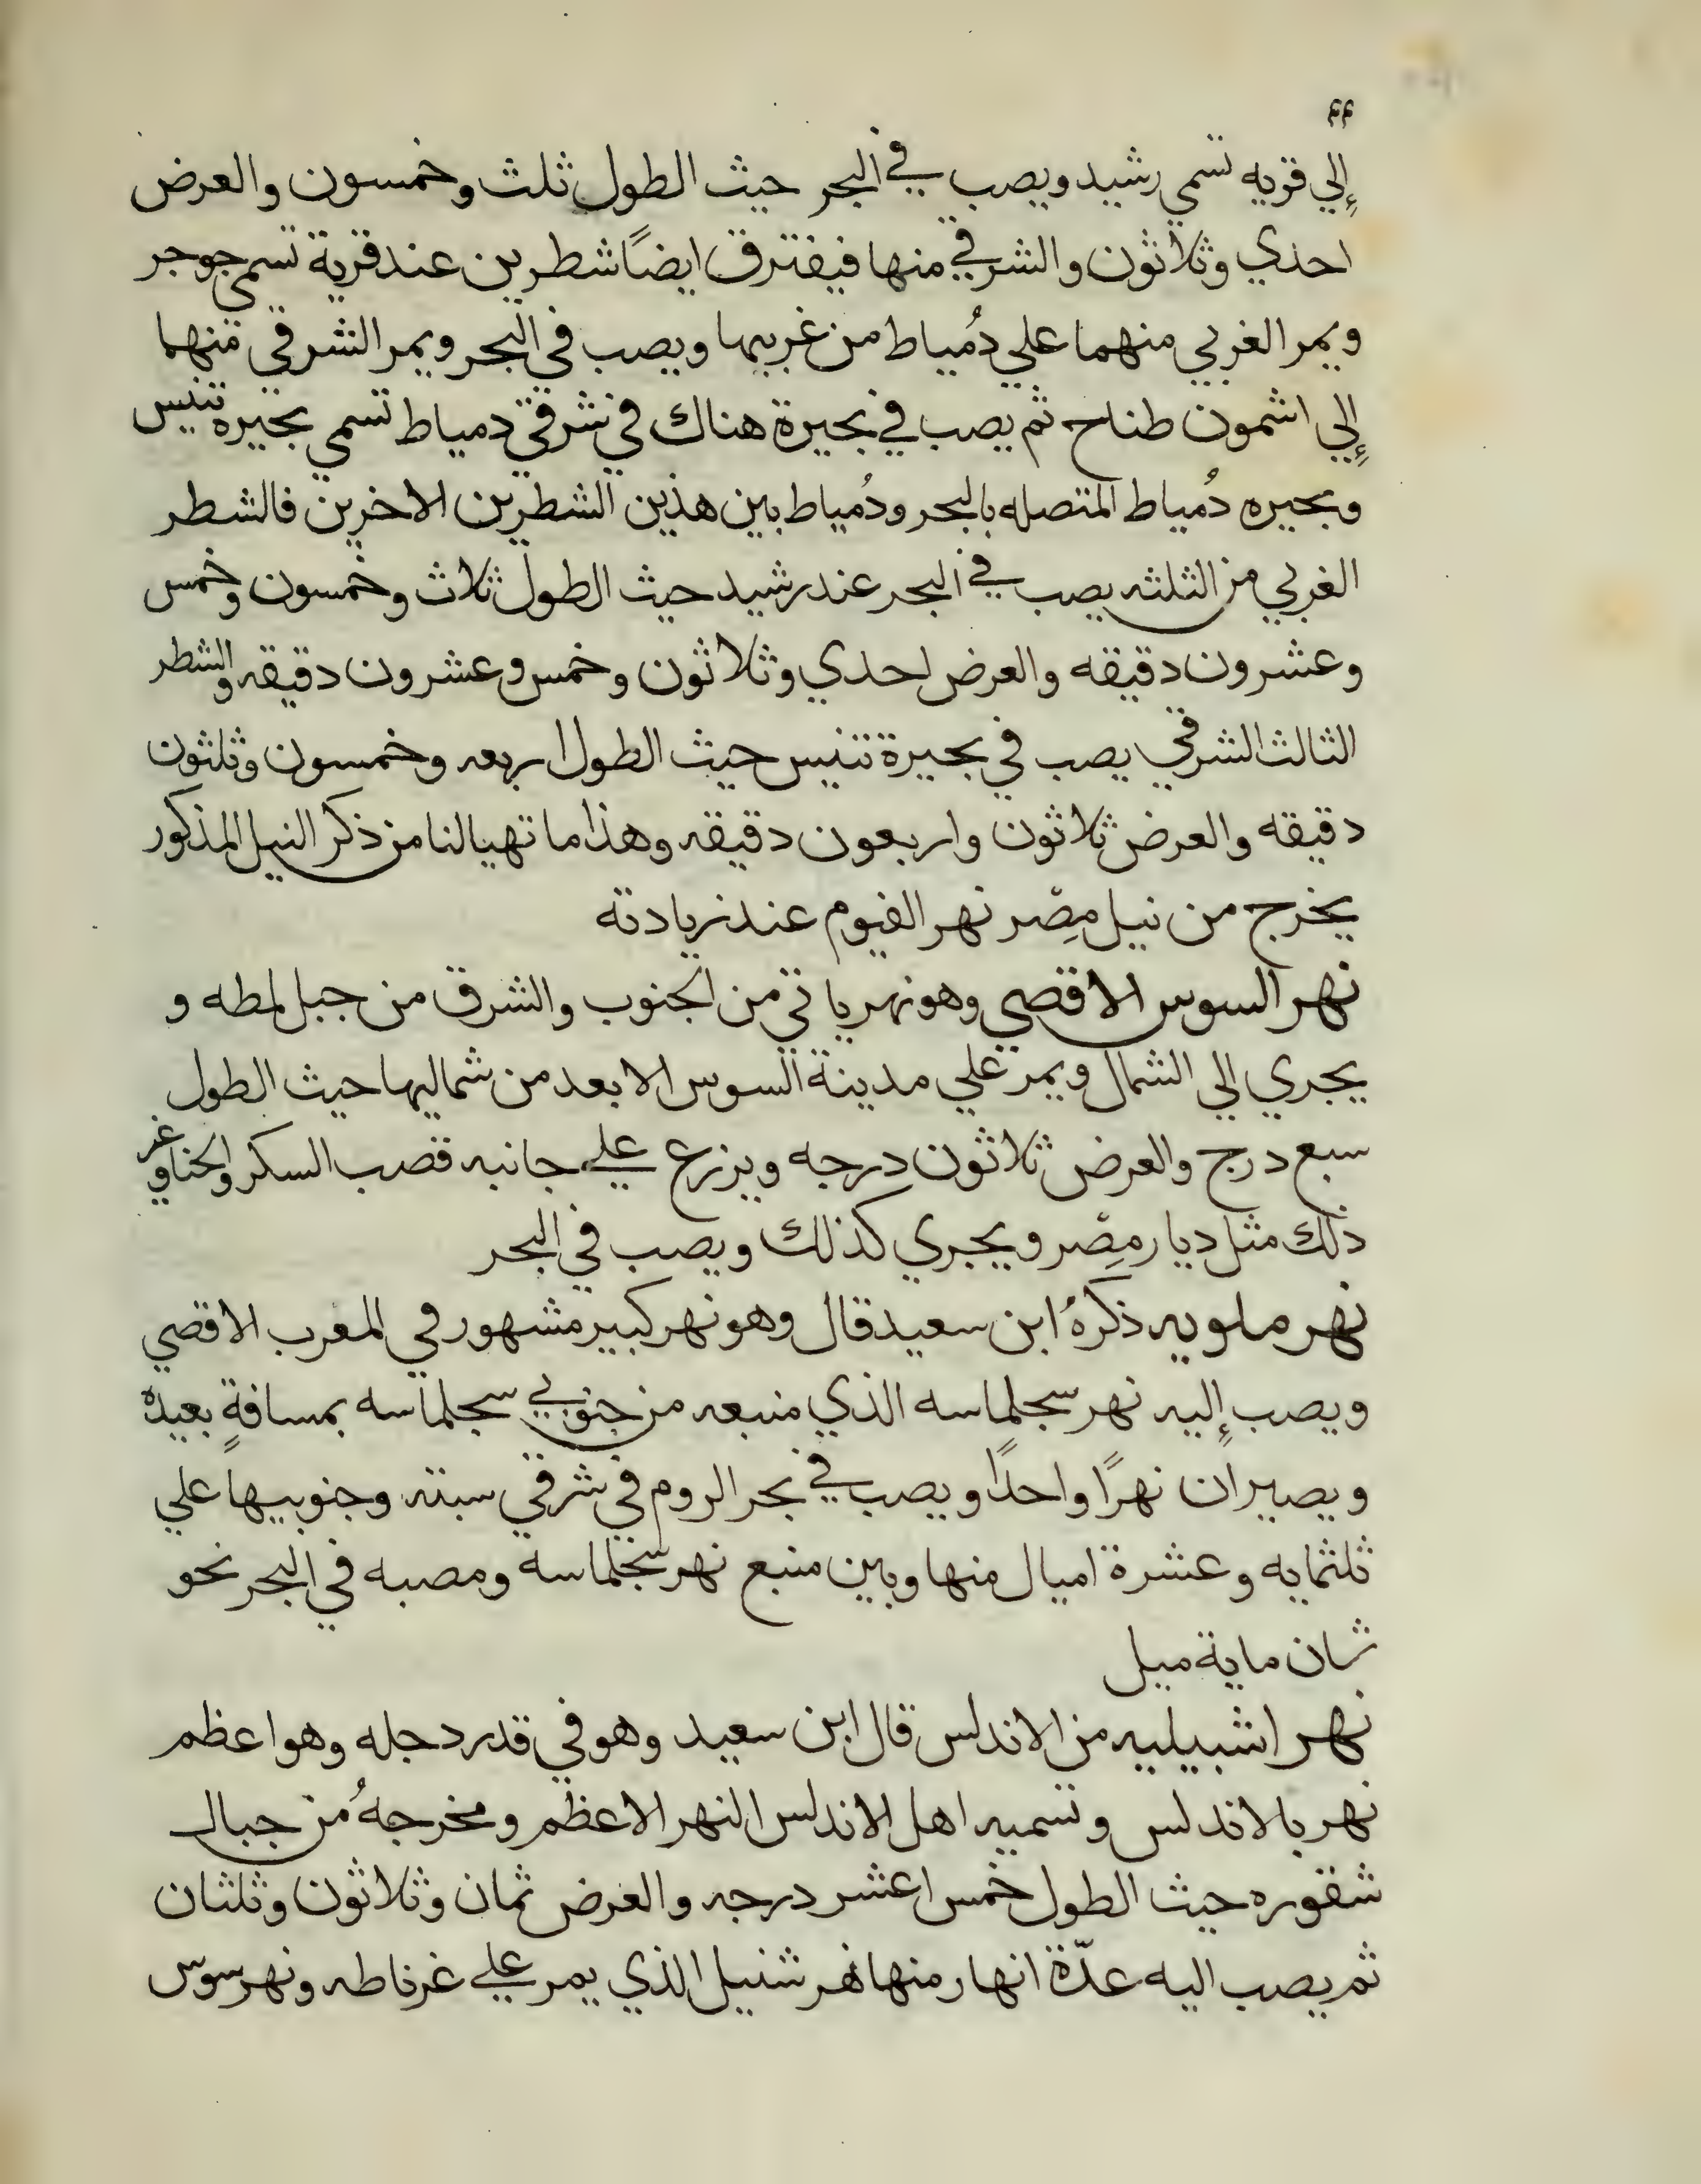 ٤٤
إلي قريه تسمي رشيد ويصب في البحر حيث الطول ثلث وخمسون والعرض
احدي وثلاثون والشرقي منها فيفترق ايضًا شطرين عند قرية تسمي جوجر
ويمر الغربي منهما علي دُمياط من غربيها ويصب في البحر ويمر الشرقي منهما
إلي اشمون طناح ثم يصب في بحيرة هناك في شرقي دمياط تسمي بحيره تنيس
وبحيره دُمياط المتصله بالبحر ودُمياط بين هذين الشطرين الاخرين فالشطر
الغربي من الثلثه يصب في البحر عند رشيد حيث الطول ثلاث وخمسون وخمس
وعشرون دقيقه والعرض احدي وثلاثون وخمس وعشرون دقيقه والشطر
الثالث الشرقي يصب في بحيرة تنيس حيث الطول اربعه وخمسون وثلثون
دقيقه والعرض ثلاثون واربعون دقيقه وهذا ما تهيا لنا من ذكر النيل المذكور
يخرج من نيل مِصْر نهر الفيوم عند زيادته
نهر السوس الاقصي وهو نهر ياتي من الجنوب والشرق من جبل لمطه و
يجري الي الشمال ويمر علي مدينة السوس الابعد من شماليها حيث الطول
سبع درج والعرض ثلاثون درجه ويزرع علي جانبه قصب السكر والحنا وغير
ذلك مثل ديار مِصْر ويجري كذلك ويصب في البحر
نهر ملويه ذكرهُ ابن سعيد قال وهو نهر كبير مشهور في المغرب الاقصي
ويصب إليه نهر سجلماسه الذي منبعه من جنوبي سجلماسه بمسافةٍ بعيدة
ويصيران نهرًا واحدًا ويصب في بحر الروم في شرقي سبته وجنوبيها علي
ثلثمايه وعشرة اميال منها وبين منبع نهر سجلماسة ومصبه في البحر نحو
ثمان ماية ميل
نهر اشبيليه من الاندلس قال ابن سعيد وهو في قدر دجله وهو اعظم
نهر بالاندلس وتسميه اهل الاندلس النهر الاعظم ومخرجهُ من جبال
شقوره حيث الطول خمس اعشر درجه والعرض ثمان وثلاثون وثلثان
ثم يصب اليه عدّة انهار منها نهر شنيل الذي يمر علي غرناطه ونهر سوس